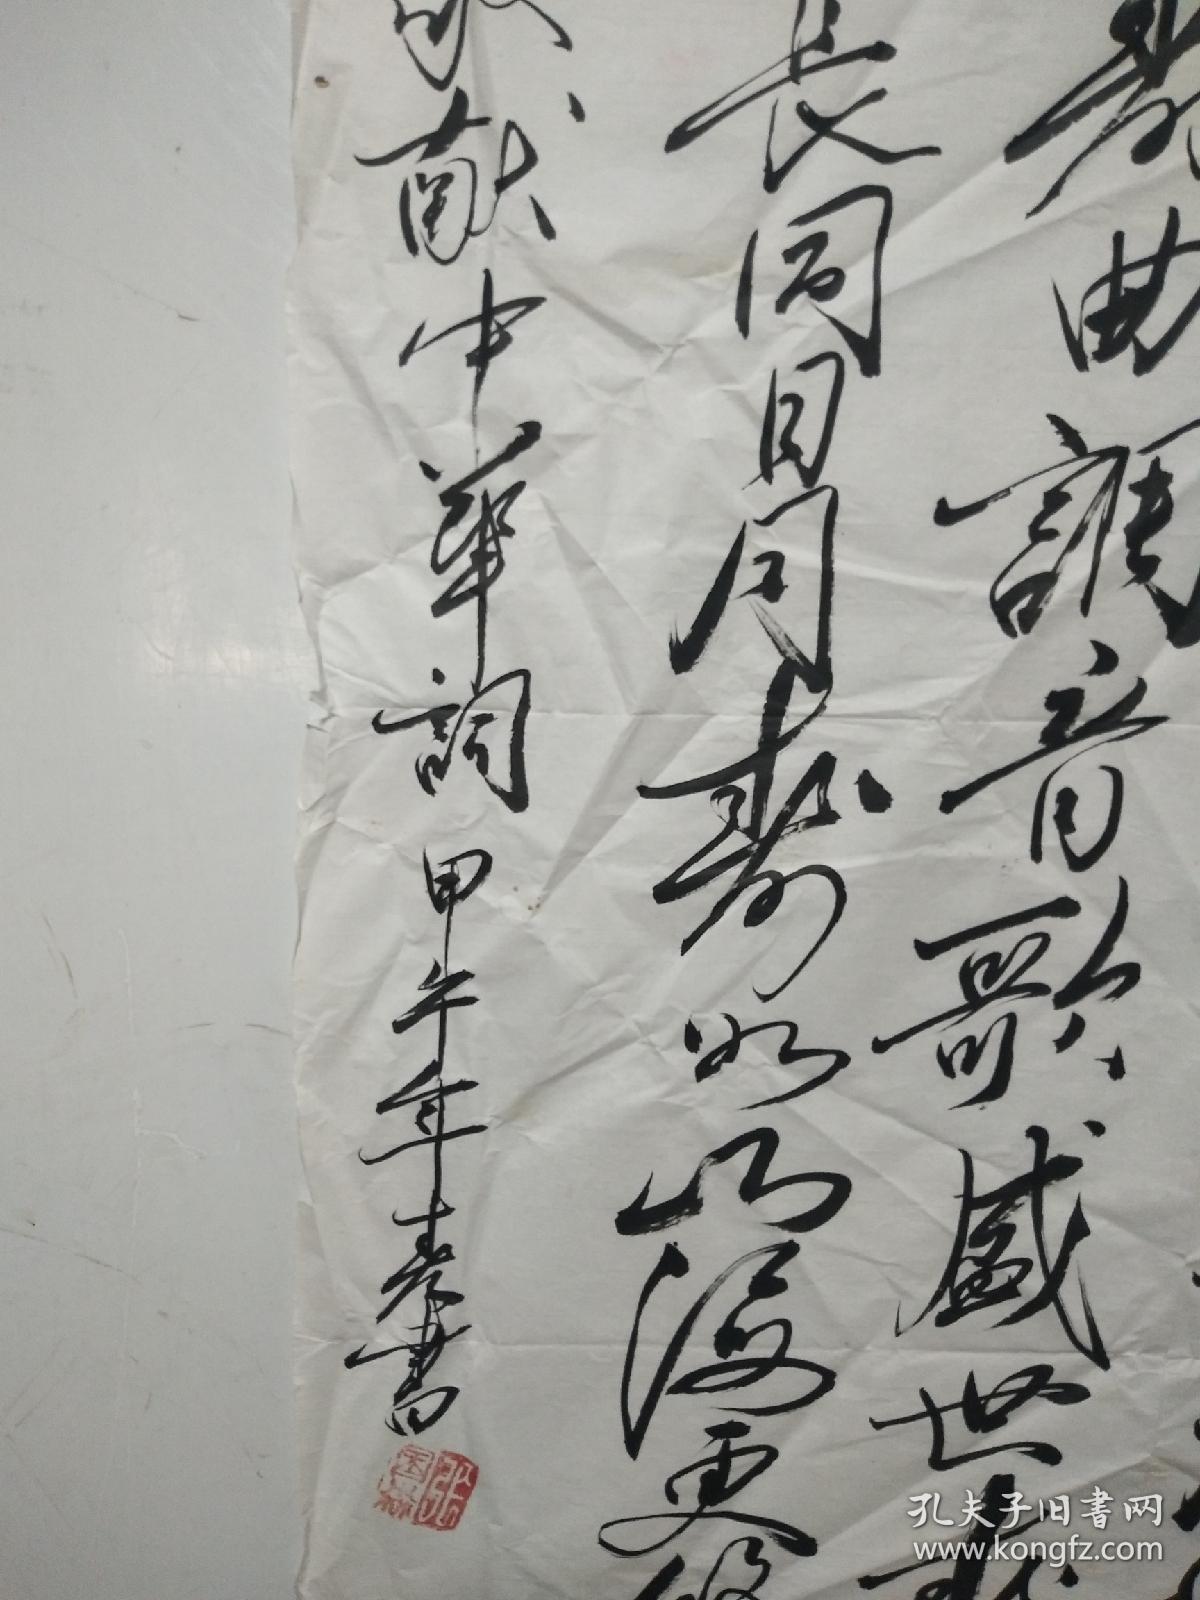 曲調音歌盛世
長同日月壽如山更
献中華詞 甲午年書
孔夫子旧書网
www.kongfz.com